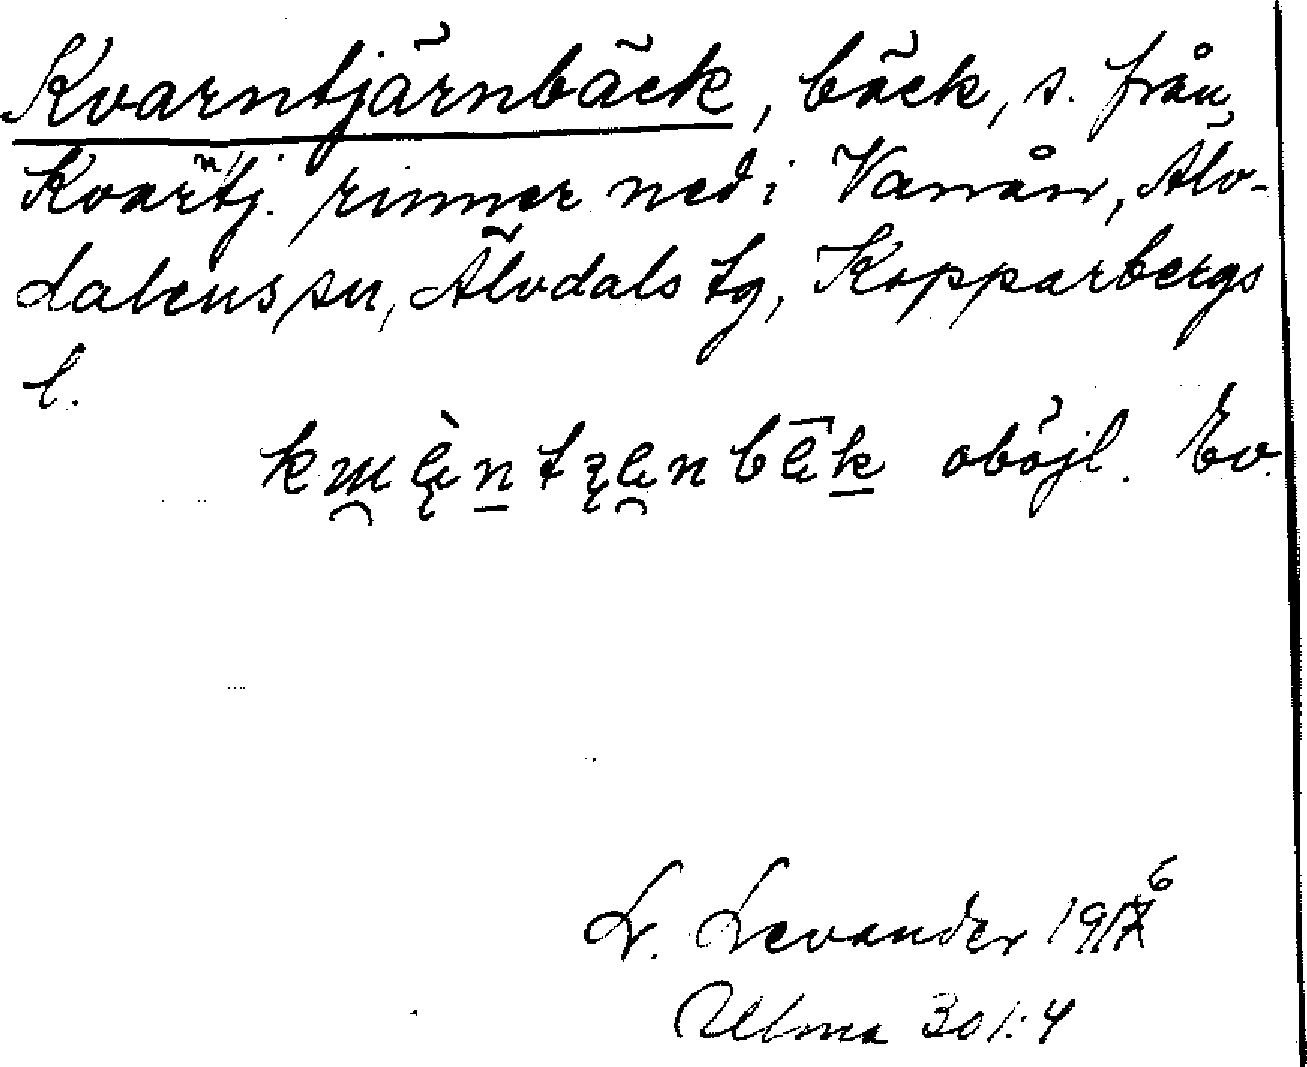 Kvarntjärnbäck, bäck, s. från
Kvarntj. rinner ned i Vanån, Älv-
dalens sn, Älvdals tg, Kopparbergs
l.
oböjl. Ev.
L. Levander 1916
Ulma 301:4